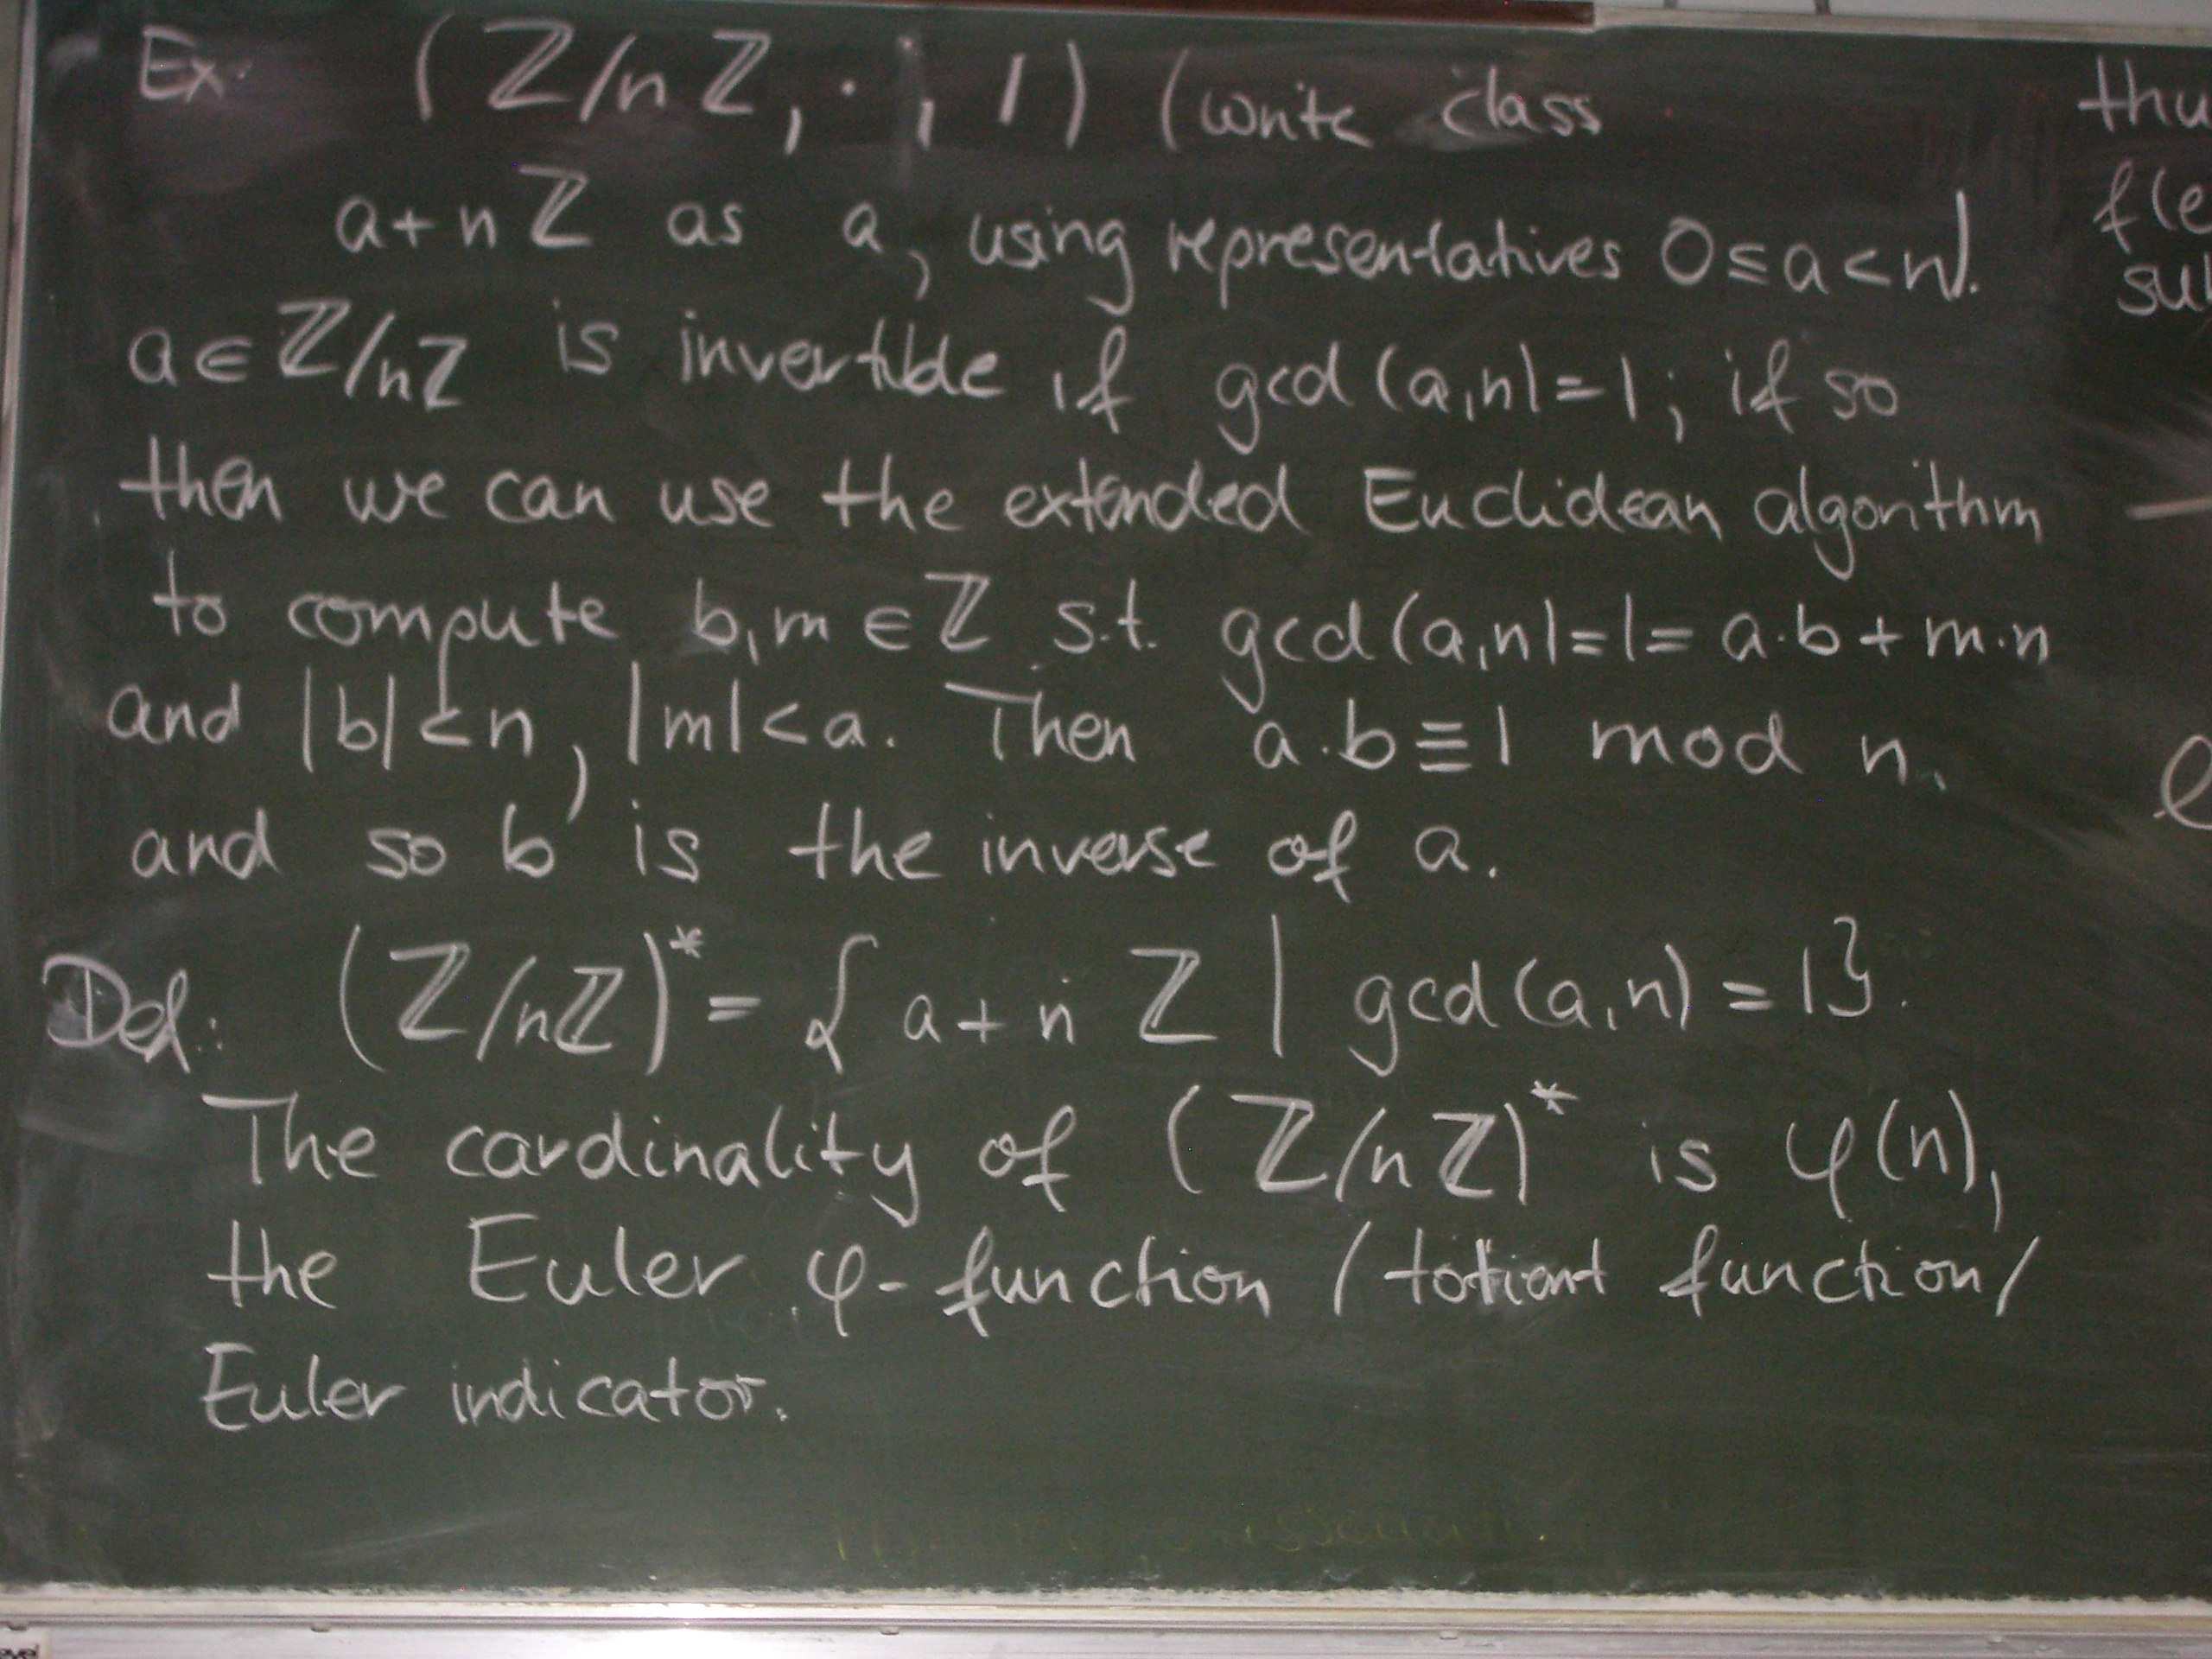 Ex: (ℤ/nℤ, ·, 1) (write class
a+nℤ as a, using representatives 0≤a<n).
a∈ℤ/nℤ is invertible if gcd(a,n)=1; if so
then we can use the extended Euclidean algorithm
to compute b,m∈ℤ s.t. gcd(a,n)=1=a·b+m·n
and |b|<n, |m|<a. Then a·b≡1 mod n.
and so b is the inverse of a.
Def: (ℤ/nℤ)*={a+nℤ | gcd(a,n)=1}.
The cardinality of (ℤ/nℤ)* is φ(n),
the Euler φ-function / totient function /
Euler indicator.
thu
f(e
su
e
evel